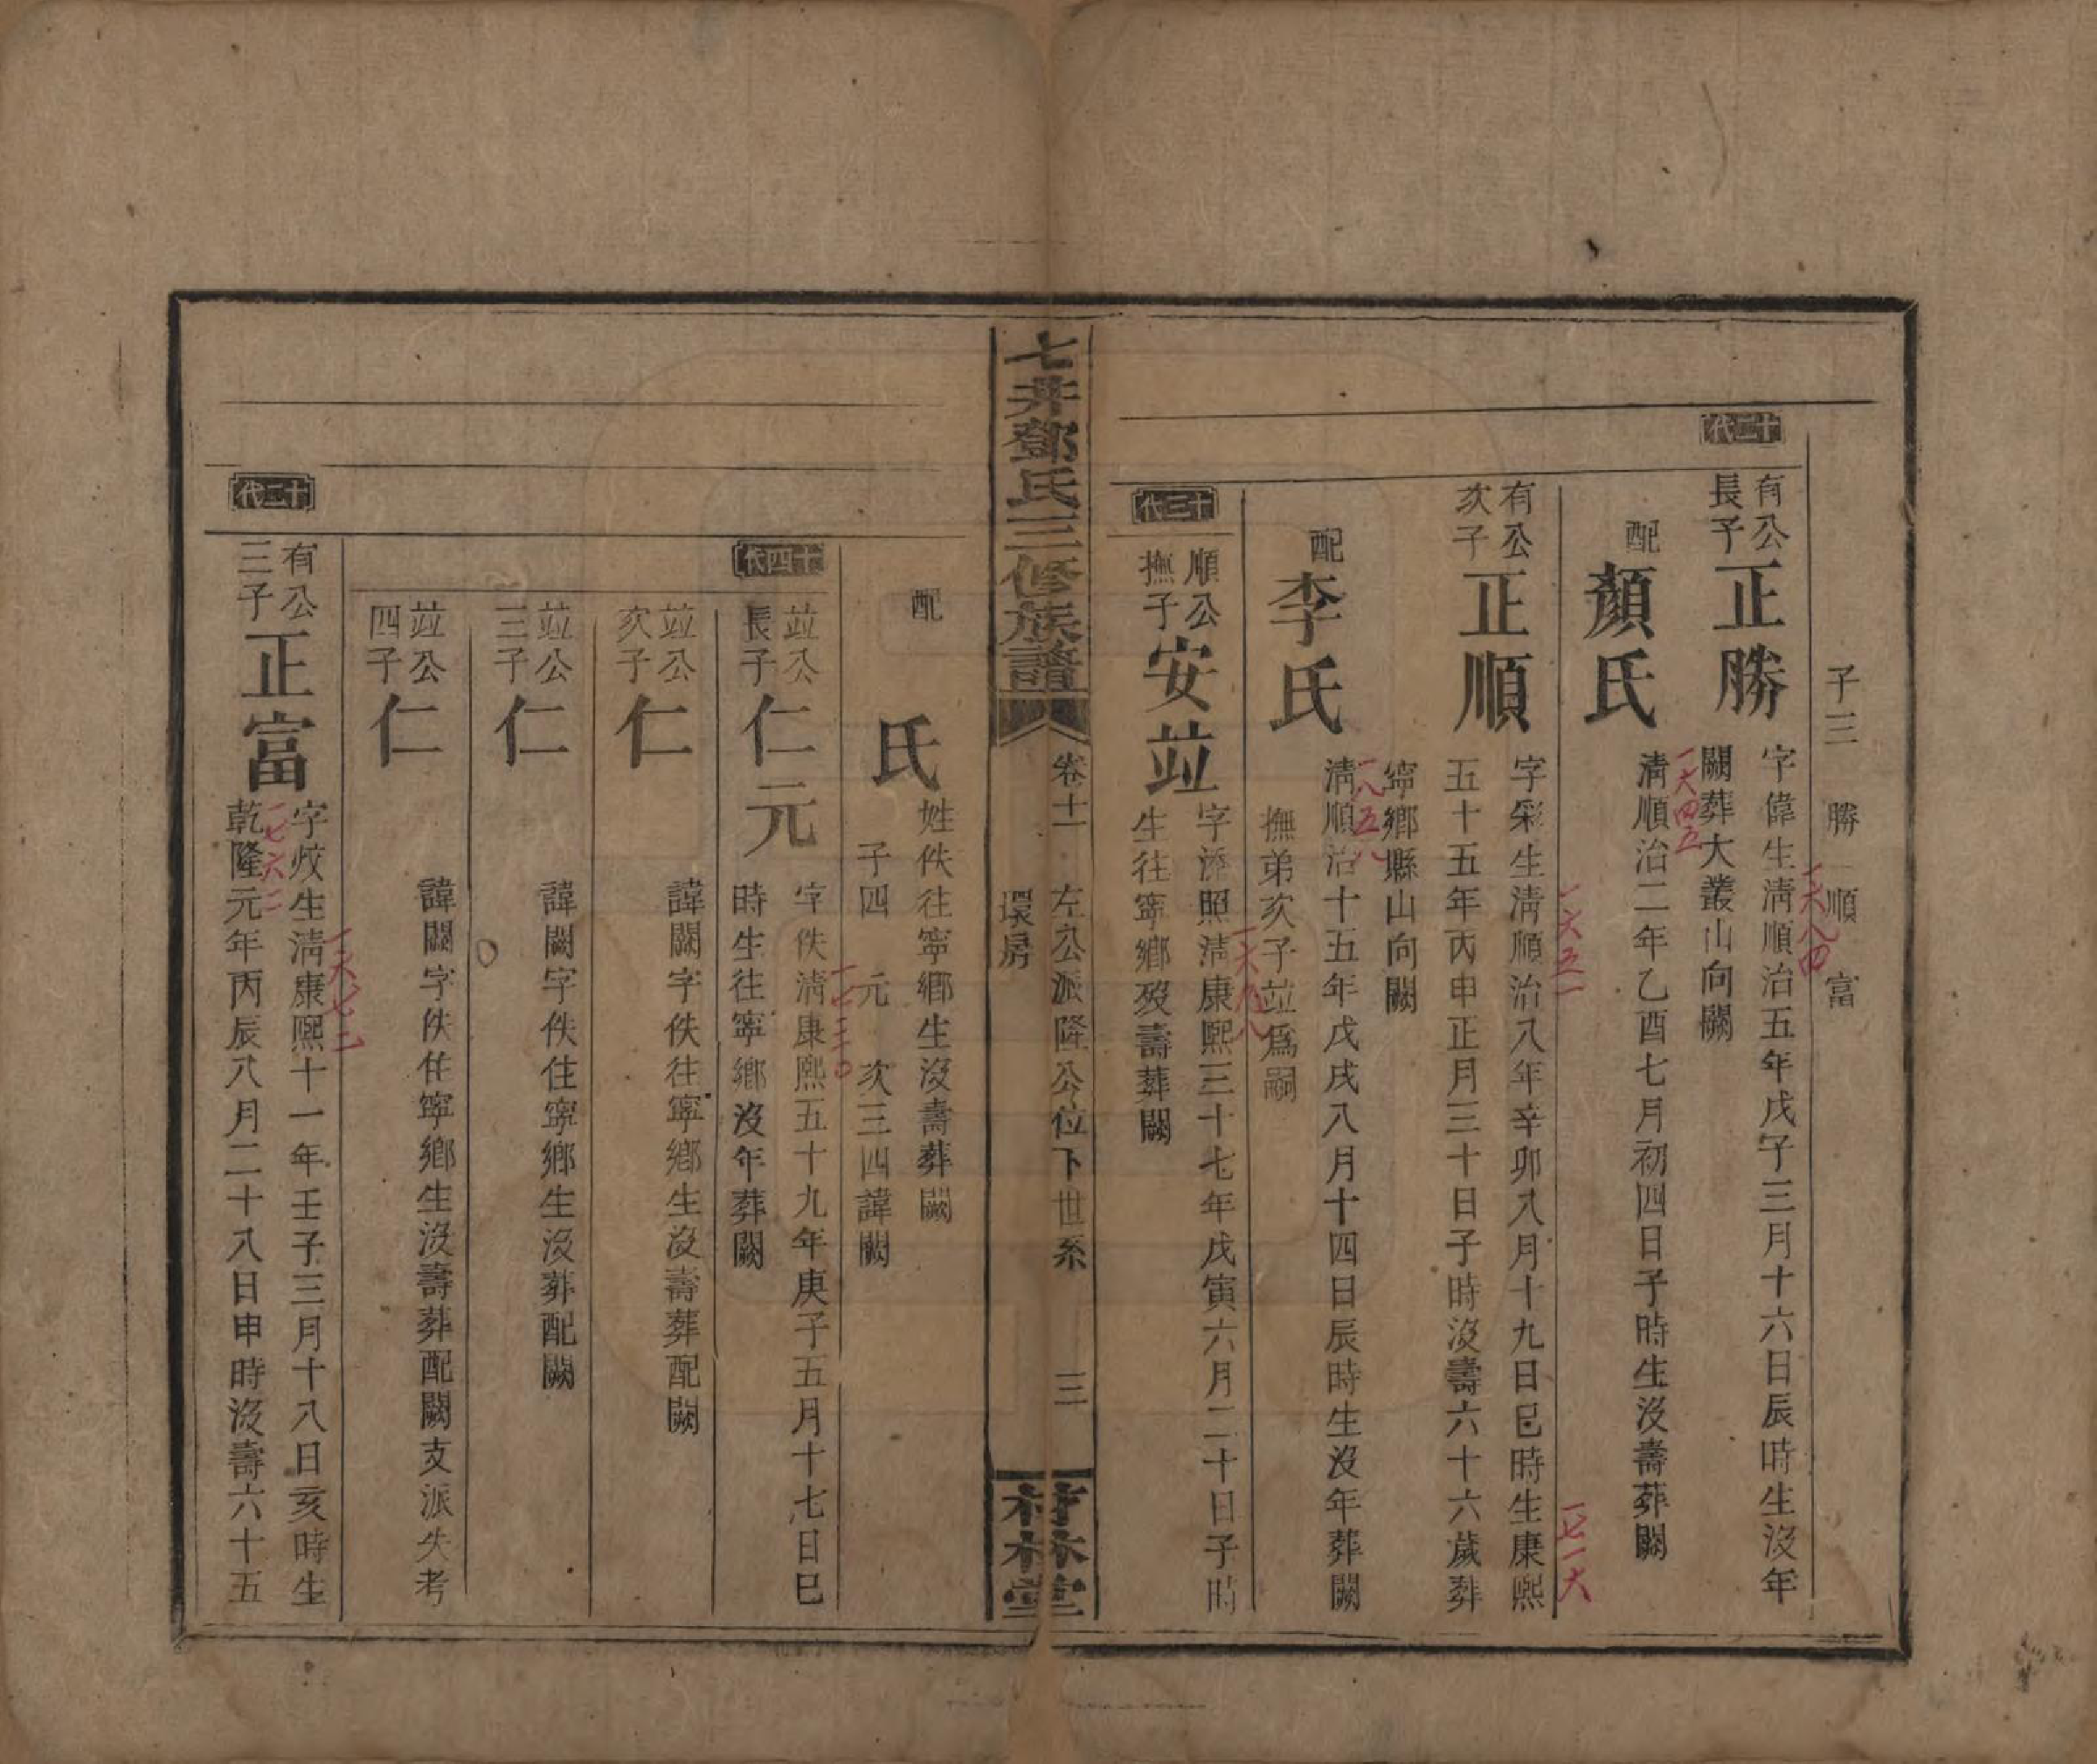 子三 勝 順 富
十二代
有公長子 正勝 字偉生清順治五年戊子三月十六日辰時生沒年
闕葬大叢山向闕
一六八四
配 顏氏 清順治二年乙酉七月初四日子時生沒壽葬闕
一六四五
有公次子 正順 字彩生清順治八年辛卯八月十九日巳時生康熙
五十五年丙申正月三十日子時沒壽六十六歲葬
寧鄉縣山向闕
一六五一
一七一六
配 李氏 清順治十五年戊戌八月十四日辰時生沒年葬闕
撫弟次子竝爲嗣
一八五八
十三代
順公撫子 安竝 字添照清康熙三十七年戊寅六月二十日子時
生往寧鄉歿壽葬闕
一六九八
七井鄧氏三修族譜
卷十一 左公派隆公位下世系 三
環房
竹林堂
配 氏 姓佚往寧鄉生沒壽葬闕
子四 元 次三四諱闕
十四代
竝公長子 仁元 字佚清康熙五十九年庚子五月十七日巳
時生往寧鄉沒年葬闕
一七二〇
竝公次子 仁 諱闕字佚往寧鄉生沒壽葬配闕
竝公三子 仁 諱闕字佚住寧鄉生沒葬配闕
竝公四子 仁 諱闕字佚住寧鄉生沒壽葬配闕支派失考
十二代
有公三子 正富 字姣生清康熙十一年壬子三月十八日亥時生
乾隆元年丙辰八月二十八日申時沒壽六十五
一六七二
一七六二